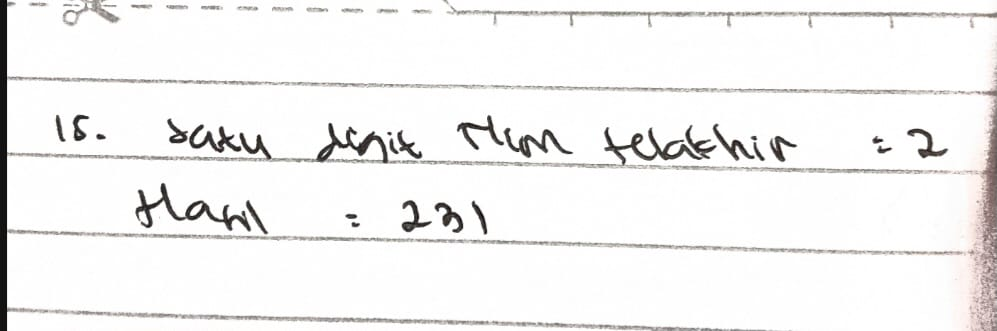 15. satu digit NIM telakhir = 2
Hasil = 231